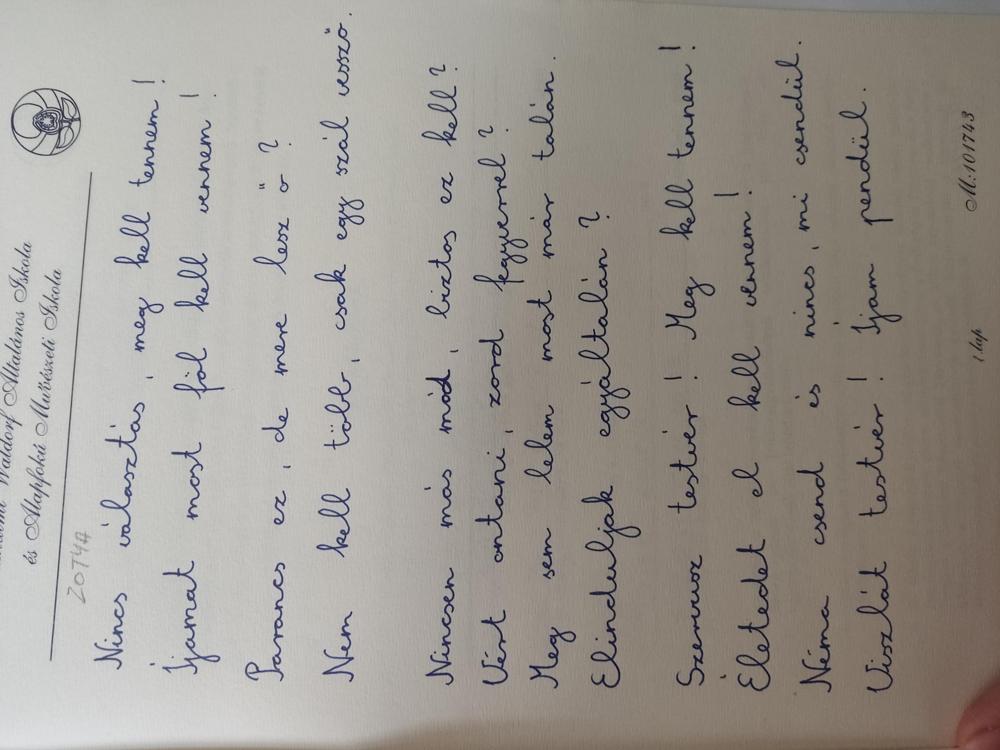 Waldorf Általános Iskola
és Alapfokú Művészeti Iskola
ZOTYA
Nincs választás, meg kell tennem!
Íjamat most föl kell vennem!
Parancs ez, de mere lesz ő?
Nem kell több, csak egy szál vessző.
Nincsen más mód, biztos ez kell?
Vért ontani, zord fegyverrel?
Meg sem lelem most már talán.
Elinduljak egyáltalán?
Szervusz testvér! Meg kell tennem!
Életedet el kell vennem!
Néma csend és nincs, mi csendül.
Viszlát testvér! Íjam pendül.
1 lap
M.:101743